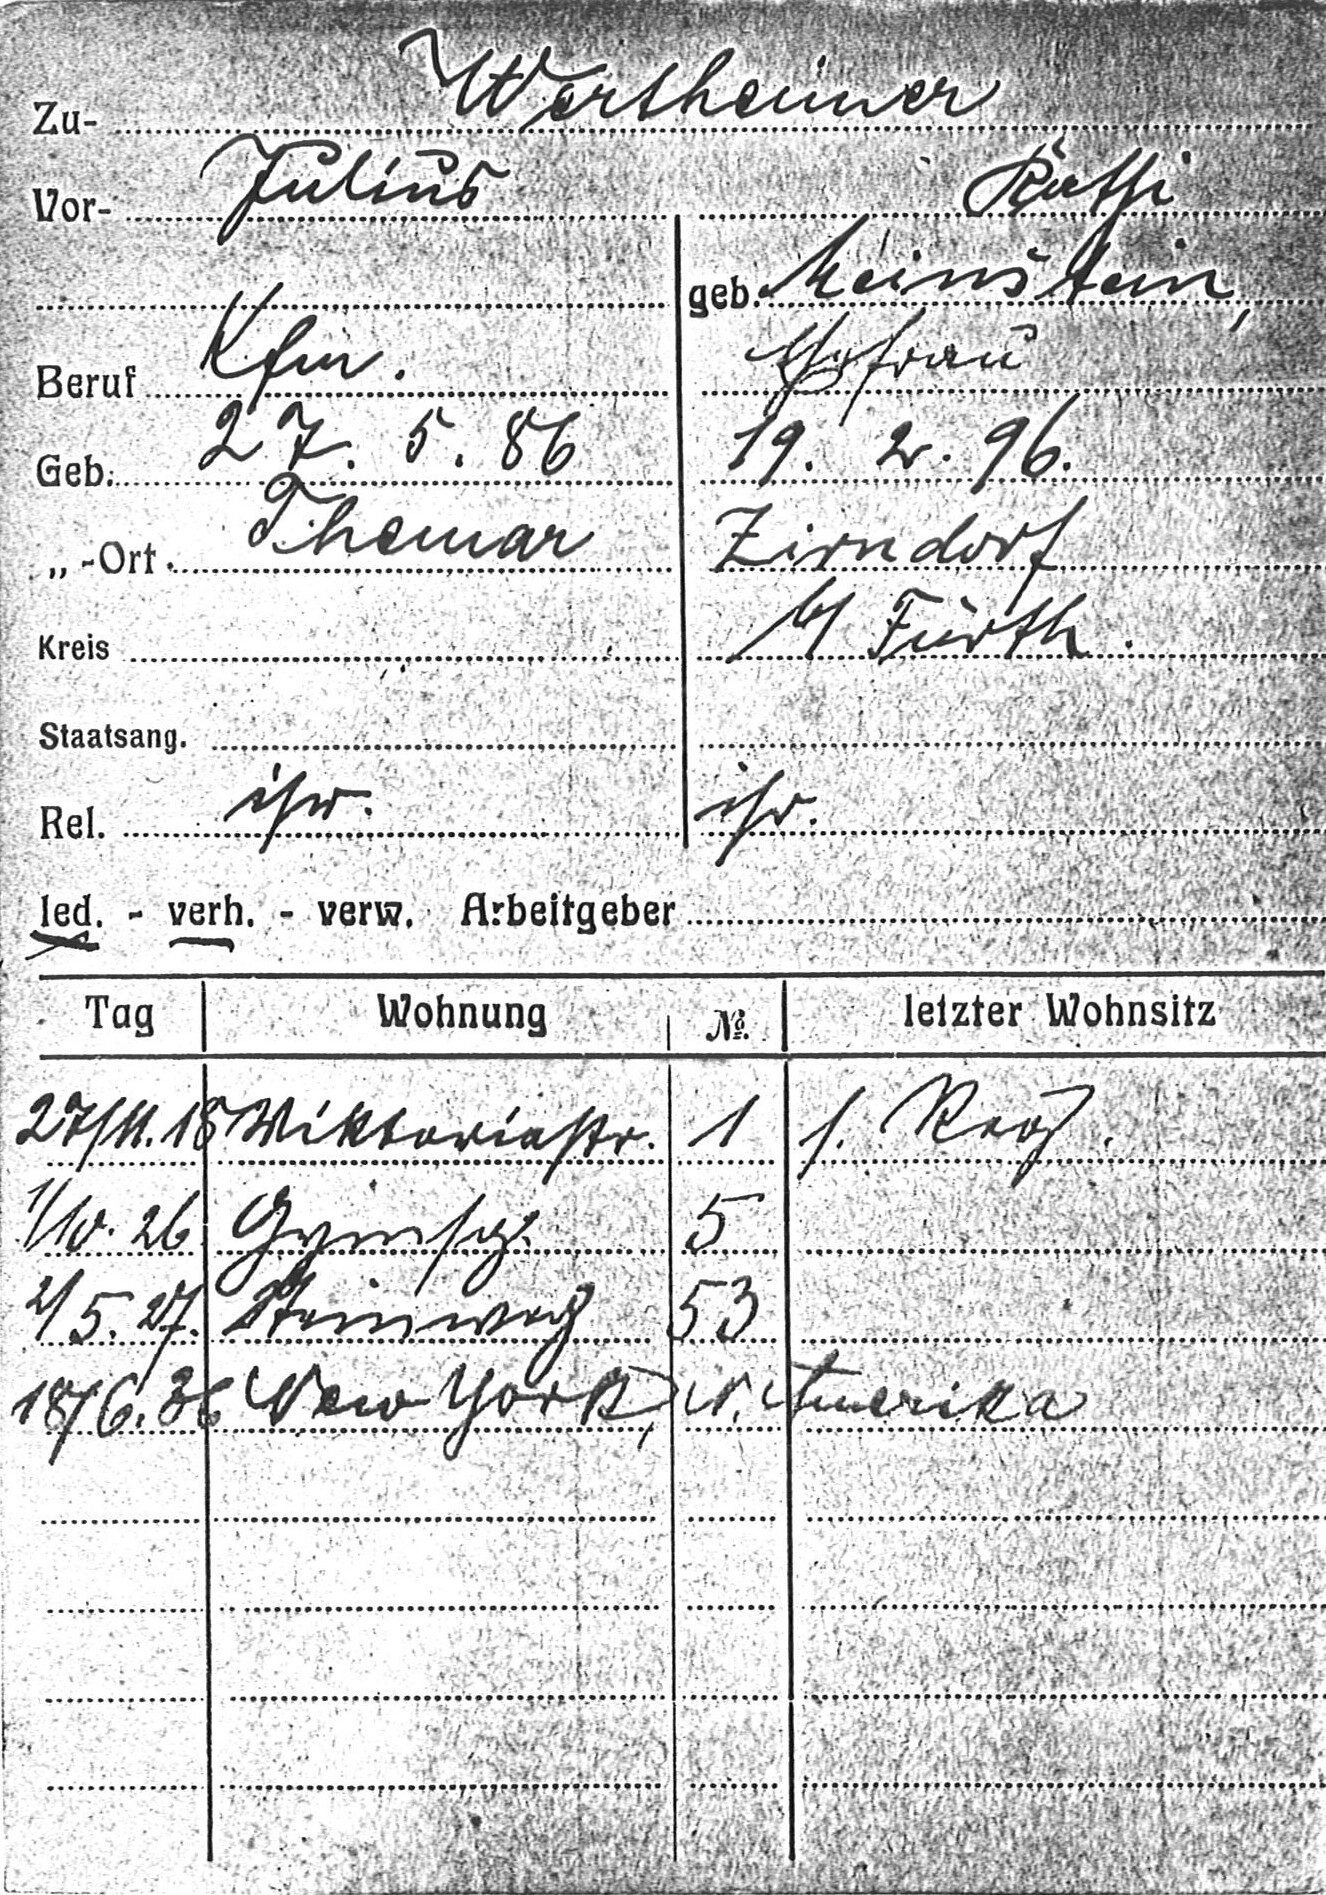 Zu- Wertheimer
Vor- Julius Käthi
geb. Meinstein,
Beruf Kfm. Ehefrau
Geb. 27. 5. 86 19. 2. 96.
„ -Ort. Themar Zirndorf
Kreis b/ Fürth.
Staatsang.
Rel. isr. isr.
led. - verh. - verw. Arbeitgeber
Tag Wohnung No. letzter Wohnsitz
27/11.18 Viktoriastr. 1 s. Reg.
1/10. 26 Gymsg. 5
2/5. 27. Steinweg 53
18/6. 36 New York, N. Amerika